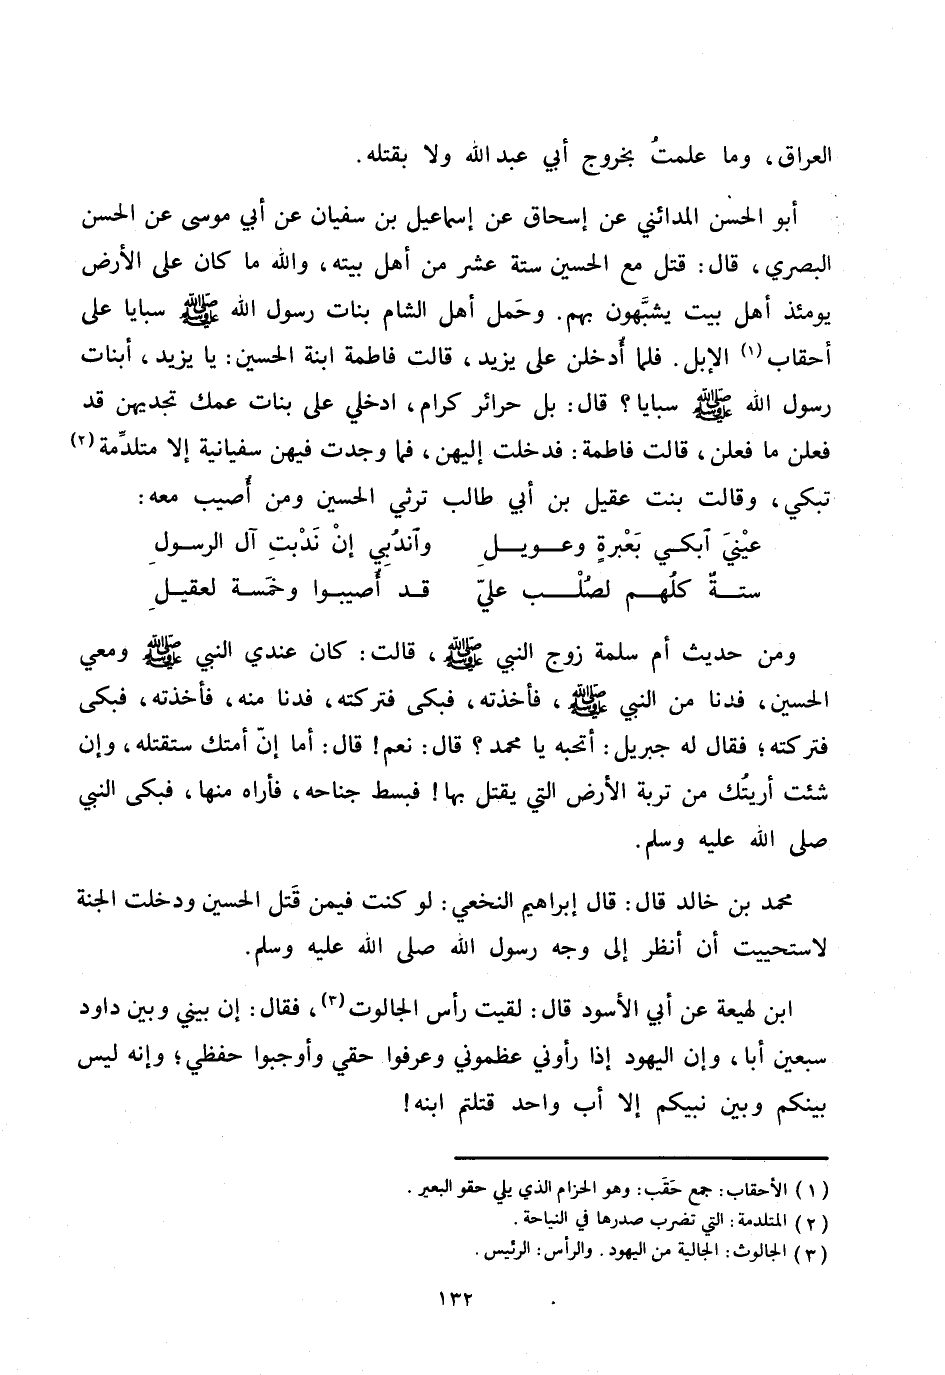 العراق، وما علمتُ بخروج أبي عبد الله ولا بقتله.
أبو الحسن المدائني عن إسحاق عن إسماعيل بن سفيان عن أبي موسى عن الحسن
البصري، قال: قتل مع الحسين ستة عشر من أهل بيته، والله ما كان على الأرض
يومئذ أهل بيت يشبَّهون بهم. وحَمل أهل الشام بنات رسول الله ﷺ سبايا على
أحقاب(١) الإبل. فلما أُدخلن على يزيد، قالت فاطمة ابنة الحسين: يا يزيد، أبنات
رسول الله ﷺ سبايا؟ قال: بل حرائر كرام، ادخلي على بنات عمك تجديهن قد
فعلن ما فعلن، قالت فاطمة: فدخلت إليهن، فما وجدت فيهن سفيانية إلا متلدِّمة(٢)
تبكي، وقالت بنت عقيل بن أبي طالب ترثي الحسين ومن أُصيب معه:
عيْنيَ ٱبكي بَعْبرةٍ وعويلِ وٱندُبِي إنْ نَدْبتِ آل الرسولِ
ستةٌ كلُهم لصُلْب عليّ قد أُصيبوا وخمَسة لعقيلِ
ومن حديث أم سلمة زوج النبي ﷺ، قالت: كان عندي النبي ﷺ ومعي
الحسين، فدنا من النبي ﷺ، فأخذته، فبكى فتركته، فدنا منه، فأخذته، فبكى
فتركته؛ فقال له جبريل: أتحبه يا محمد؟ قال: نعم! قال: أما إنّ أمتك ستقتله، وإن
شئت أريتُك من تربة الأرض التي يقتل بها! فبسط جناحه، فأراه منها، فبكى النبي
صلى الله عليه وسلم.
محمد بن خالد قال: قال إبراهيم النخعي: لو كنت فيمن قَتل الحسين ودخلت الجنة
لاستحييت أن أنظر إلى وجه رسول الله صلى الله عليه وسلم.
ابن لهيعة عن أبي الأسود قال: لقيت رأس الجالوت(٣)، فقال: إن بيني وبين داود
سبعين أبا، وإن اليهود إذا رأوني عظموني وعرفوا حقي وأوجبوا حفظي؛ وإنه ليس
بينكم وبين نبيكم إلا أب واحد قتلتم ابنه!
(١) الأحقاب: جمع حَقَب: وهو الحزام الذي يلي حقو البعير.
(٢) المتلدمة: التي تضرب صدرها في النياحة.
(٣) الجالوث: الجالية من اليهود. والرأس: الرئيس.
١٣٢